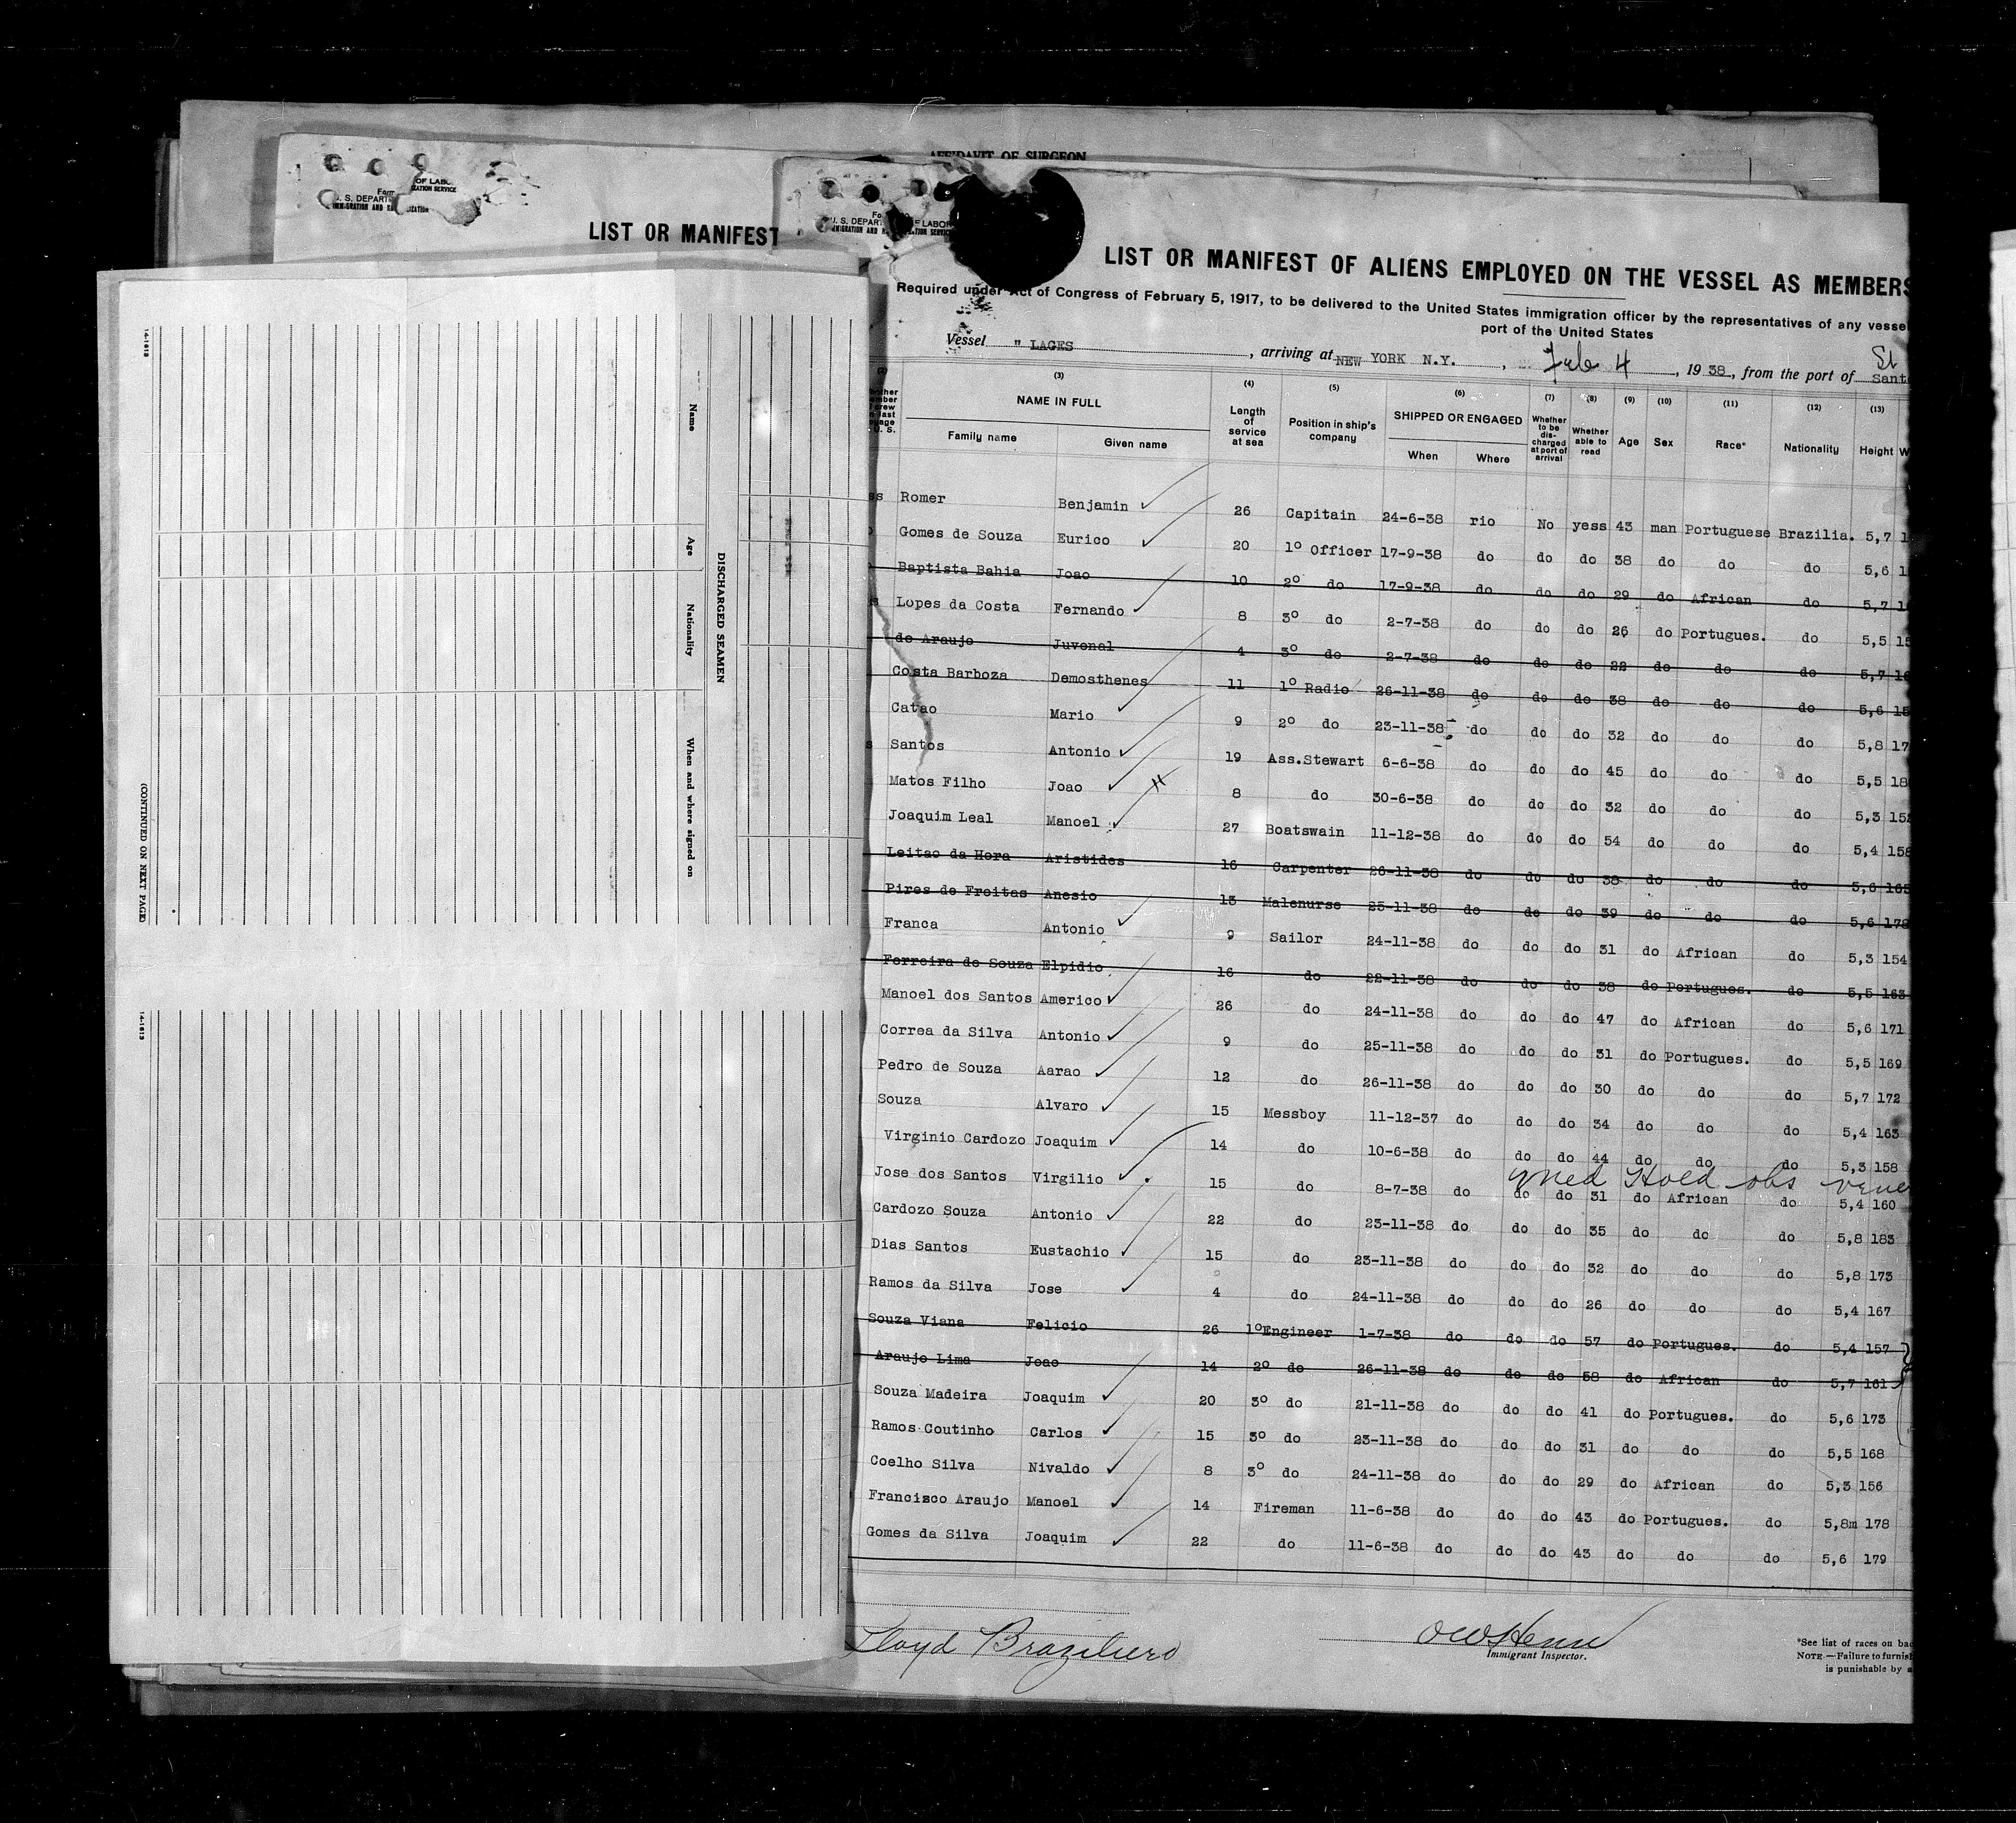 AFFIDAVIT OF SURGEON
OF LABO
IZATION SERVICE
Form
U. S. DEPART
IMMIGRATION AND NA IZATION
LIST OR MANIFEST
Fo
U. S. DEPART F LABOR
MIGRATION AND N ZATION SERVICE
LIST OR MANIFEST OF ALIENS EMPLOYED ON THE VESSEL AS MEMBERS
Required under Act of Congress of February 5, 1917, to be delivered to the United States immigration officer by the representatives of any vesse
port of the United States
Vessel " LAGES , arriving at NEW YORK N.Y. , Feb 4 , 19 38, from the port of St Sant
(2) (3) (4) (5) (6) (7) (8) (9) (10) (11) (12) (13)
NAME IN FULL Length of service at sea Position in ship's company SHIPPED OR ENGAGED Whether to be discharged at port of arrival Whether able to read Age Sex Race* Nationality Height W
Family name Given name When Where
ss Romer Benjamin 26 Capitain 24-6-38 rio No yess 43 man Portuguese Brazilia. 5,7 1
Gomes de Souza Eurico 20 1º Officer 17-9-38 do do do 38 do do do 5,6 1
Baptista Bahia Joao 10 2º do 17-9-38 do do do 29 do African do 5,7 1
Lopes da Costa Fernando 8 3º do 2-7-38 do do do 26 do Portugues. do 5,5 15
de Araujo Juvenal 4 3º do 2-7-38 do do do 22 do do do 5,7 16
Costa Barboza Demosthenes 11 1º Radio 26-11-38 do do do 38 do do do 5,6 15
Catao Mario 9 2º do 23-11-38 do do do 32 do do do 5,8 17
Santos Antonio 19 Ass.Stewart 6-6-38 do do do 45 do do do 5,5 18
Matos Filho Joao 8 do 30-6-38 do do do 32 do do do 5,3 152
Joaquim Leal Manoel 27 Boatswain 11-12-38 do do do 54 do do do 5,4 158
Leitao da Hora Aristides 16 Carpenter 26-11-38 do do do 38 do do do 5,6 165
Pires de Freitas Anesio 13 Malenurse 25-11-38 do do do 39 do do do 5,6 178
Franca Antonio 9 Sailor 24-11-38 do do do 31 do African do 5,3 154
Ferreira de Souza Elpidio 16 do 22-11-38 do do do 38 do Portugues. do 5,5 163
Manoel dos Santos Americo 26 do 24-11-38 do do do 47 do African do 5,6 171
Correa da Silva Antonio 9 do 25-11-38 do do do 31 do Portugues. do 5,5 169
Pedro de Souza Aarao 12 do 26-11-38 do do do 30 do do do 5,7 172
Souza Alvaro 15 Messboy 11-12-37 do do do 34 do do do 5,4 163
Virginio Cardozo Joaquim 14 do 10-6-38 do do do 44 do do do 5,3 158
Hold obs
Jose dos Santos Virgilio 15 do 8-7-38 do do do 31 do African do 5,4 160
Cardozo Souza Antonio 22 do 23-11-38 do do do 35 do do do 5,8 183
Dias Santos Eustachio 15 do 23-11-38 do do do 32 do do do 5,8 173
Ramos da Silva Jose 4 do 24-11-38 do do do 26 do do do 5,4 167
Souza Viana Felicio 26 1ºEngineer 1-7-38 do do do 57 do Portugues. do 5,4 157
Araujo Lima Joao 14 2º do 26-11-38 do do do 58 do African do 5,7 161
Souza Madeira Joaquim 20 3º do 21-11-38 do do do 41 do Portugues. do 5,6 173
Ramos Coutinho Carlos 15 3º do 23-11-38 do do do 31 do do do 5,5 168
Coelho Silva Nivaldo 8 3º do 24-11-38 do do do 29 do African do 5,3 156
Francisco Araujo Manoel 14 Fireman 11-6-38 do do do 43 do Portugues. do 5,8m 178
Gomes da Silva Joaquim 22 do 11-6-38 do do do 43 do do do 5,6 179
Lloyd Braziliero
Immigrant Inspector.
*See list of races on bac
NOTE.—Failure to furnish
is punishable by a
14-1613
Name
Age
Nationality
When and where signed on
DISCHARGED SEAMEN
(CONTINUED ON NEXT PAGE)
14-1613